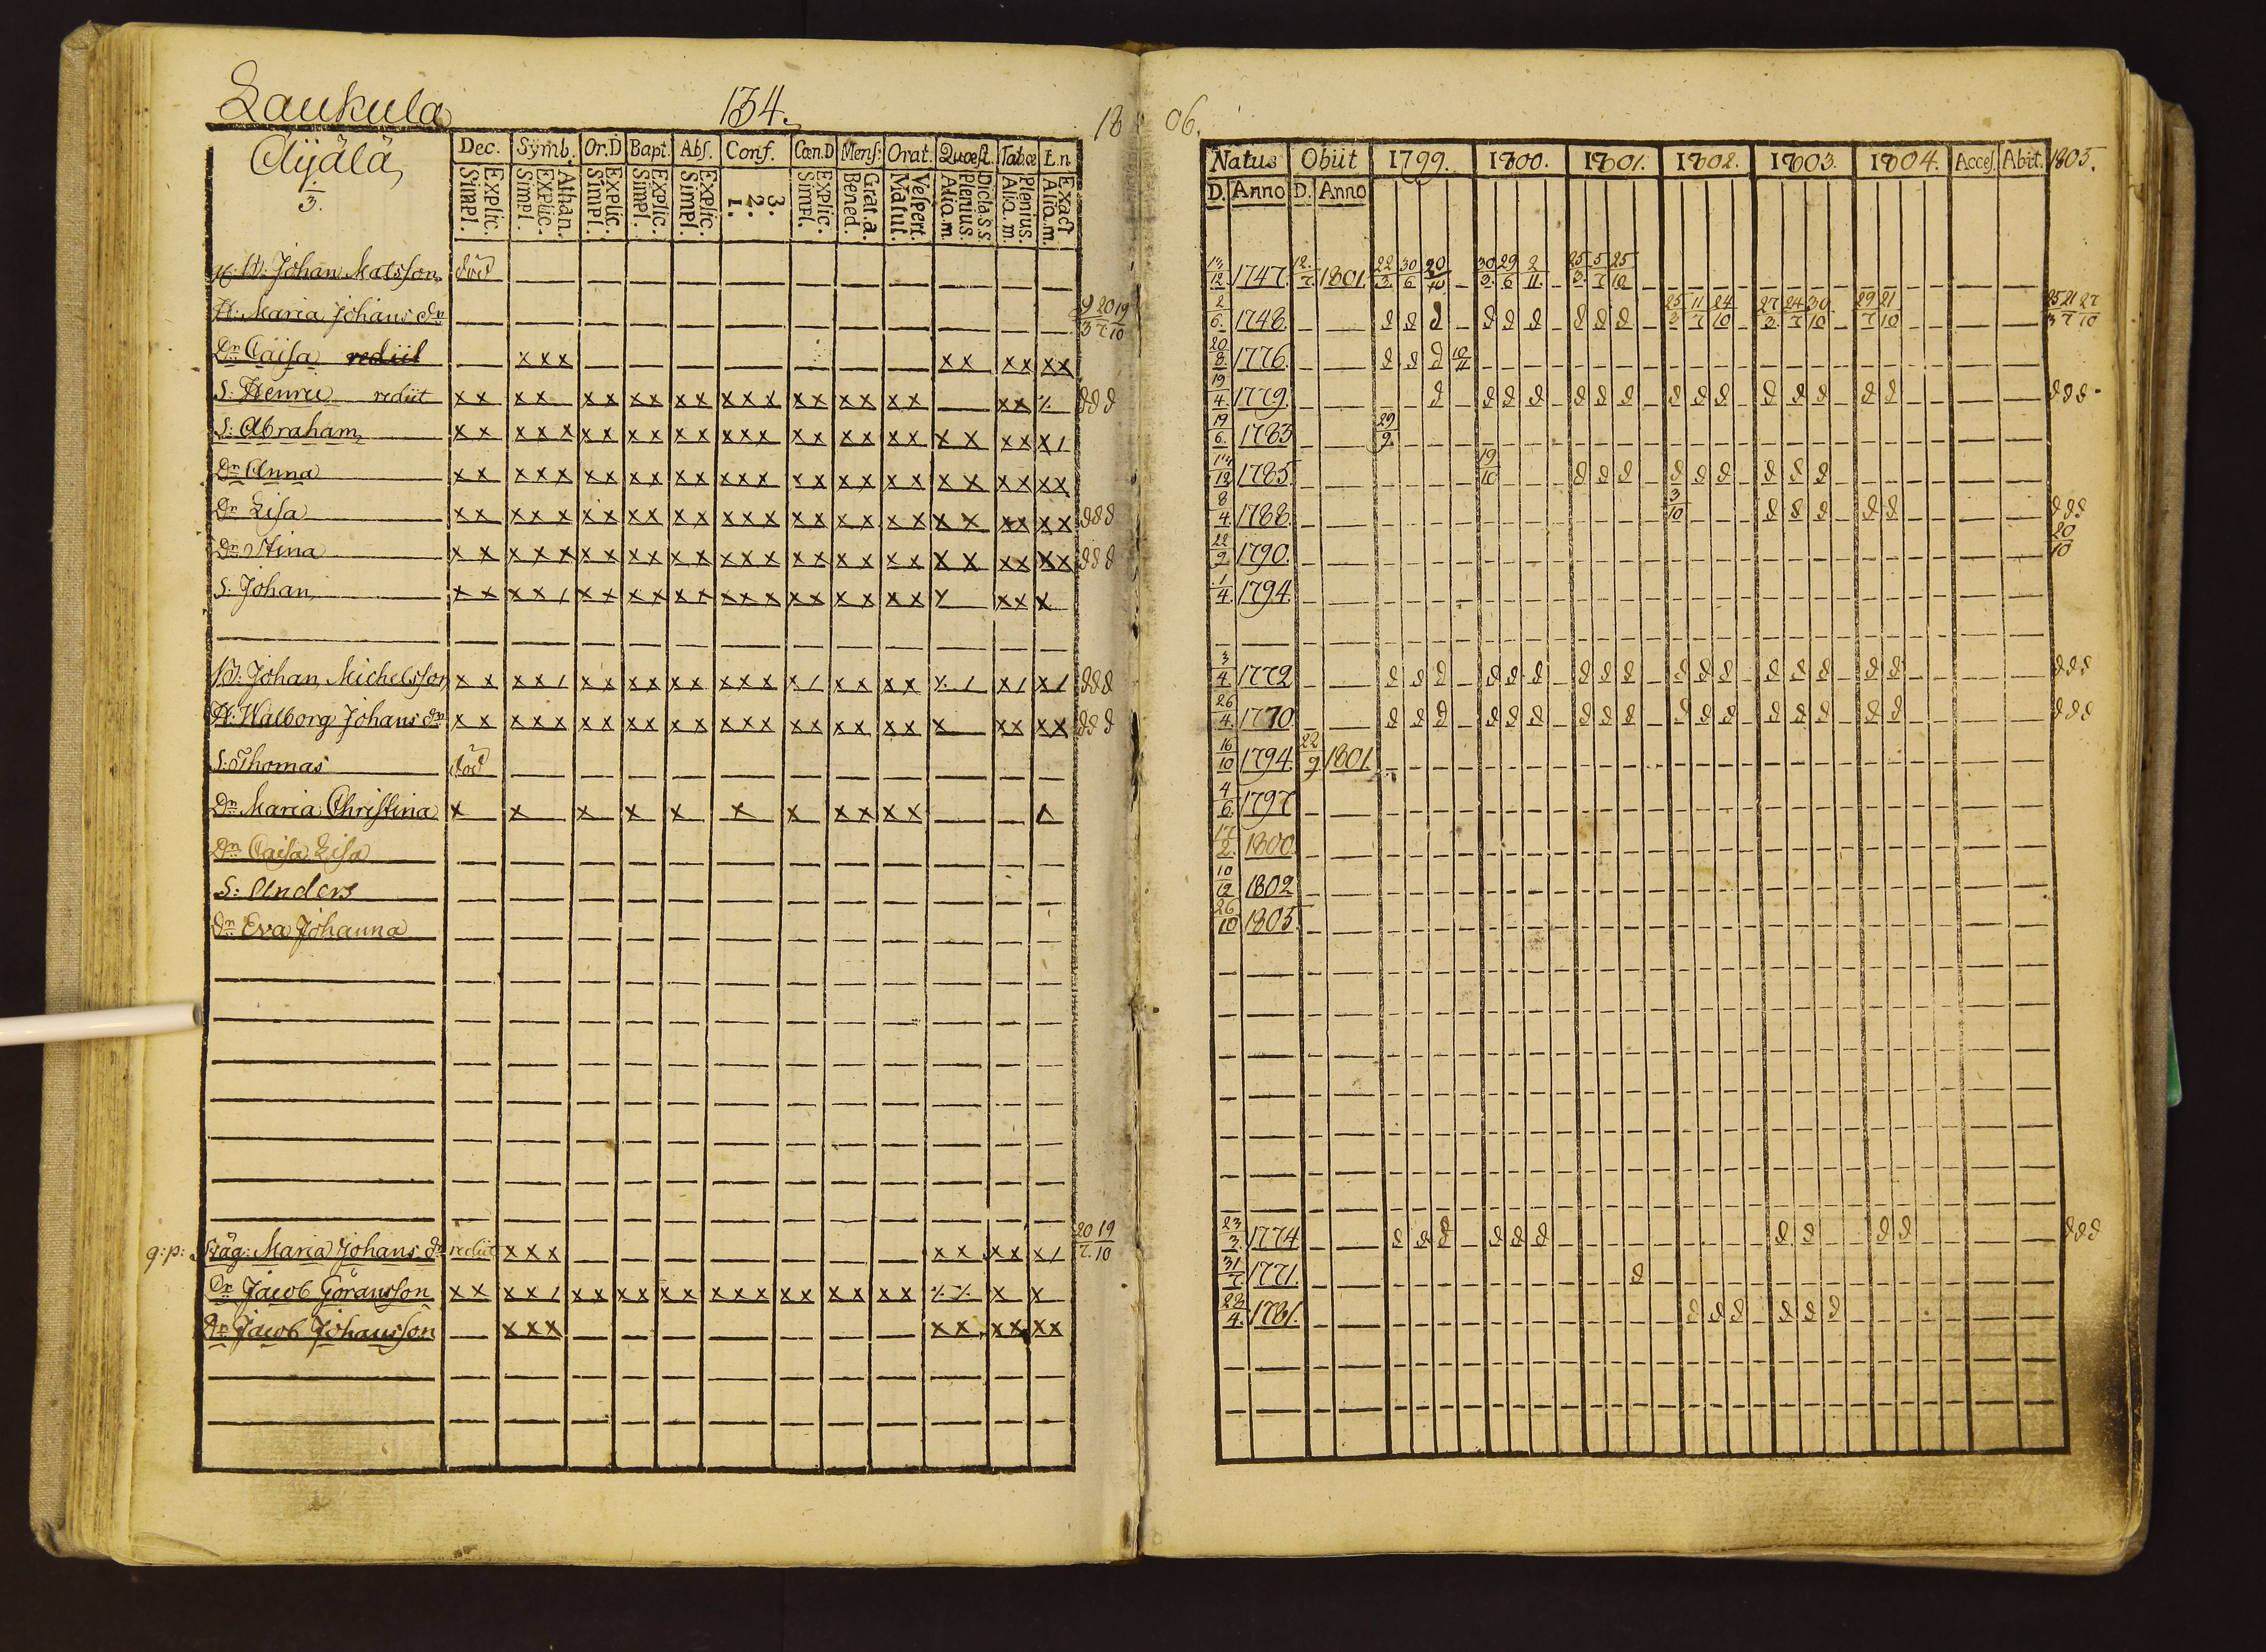 Laukula
134.
18 06.
Äÿälä
3.
Dec. Sÿmb. Or.D Bapt. Abs. Conf. Cœn.D Mens: Orat. Quæst. Tab.œ E.n
Explic. Simpl. Athan. Explic. Simpl. Explic. Simpl. Explic. Simpl. Explic. Simpl. 3. 2. 1. Explic. Simpl. Grat.a. Bened. Vespert. Matut. Dicta.s.s. Plenius. Alia.m. Plenius. Alia.m. Exact Alia.m.
Natus Obiit 1799. 1800. 1801. 1802. 1803. 1804. Acces. Abit. 1805.
D. Anno D. Anno
Johan Matsson död 1747. 12/7 1801. 22/3 30/6 20/10 30/3 29/6 2/11 25/3 5/7 25/10
H: Maria Johans dr 9/3 20/7 19/10 2/6. 1748. d d d d d d d d d 25/3 11/7 24/10 27/3 24/7 30/10 29/7 21/10 25/3 21/7 27/10
Dr Caisa rediit x x x x x x x x x 20/8. 1776. d d d 10/11
S: Henric rediit x x x x x x x x x x x x x x x x x x x x x x d d d 19/4. 1779. d d d d d d d d d d d d d d d d d d
S: Abraham x x x x x x x x x x x x x x x x x x x x x x x x x x 19/6. 1783 29/9.
Dr Anna x x x x x x x x x x x x x x x x x x x x x x x x x x x 14/12 1785. 19/10 d d d d d d d d d
Dr Lisa x x x x x x x x x x x x x x x x x x x x x x x x x x x d d d 8/4. 1788. 3/10 d d d d d d d d
Dr Stina x x x x x x x x x x x x x x x x x x x x x x x x x x x d d d 22/9. 1790. 20/10
S: Johan x x x x / x x x x x x x x x x x x x x x x x x x x 1/4. 1794.
B: Johan Michelsson x x x x / x x x x x x x x x x / x x x x x / x / x / d d d 3/4. 1772 d d d d d d d d d d d d d d d d d d d d
H: Walborg Johans dr x x x x x x x x x x x x x x x x x x x x x x x x x x d d d 26/4. 1770. d d d d d d d d d d d d d d d d d d d d
S: Thomas död 16/10 1794. 22/9. 1801.
Dr Maria Christina x x x x x x x x x x x 4/6. 1797
Dr Caisa Lisa 17/2. 1800.
S: Anders 10/12 1802
Dr Eva Johanna 26/10 1805.
g: p: Maria Johans dr rediit x x x x x x x x / 20/7. 19/10 23/3. 1774 d d d d d d d d d d d d d
Dr Jacob Göransson x x x x / x x x x x x x x x x x x x x x x x 31/7. 1771. d
Dr Jacob Johansson x x x x x x x x x 28/4. 1781. d d d d d d